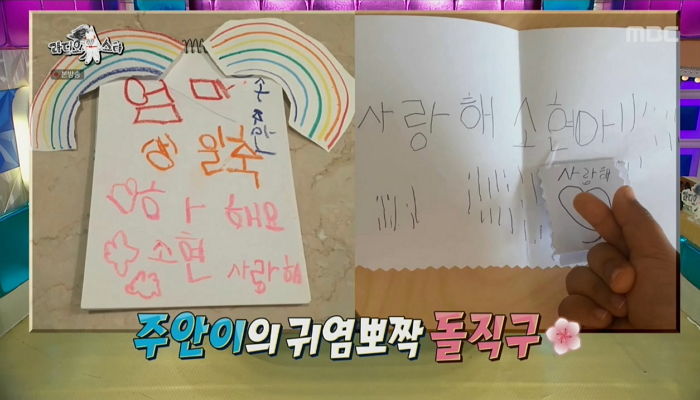 라디오스타
본방송
MBC
엄마
손주안
생일축
하해요
소현 사랑해
사랑해 소현아
사랑해
주안이의 귀염뽀짝 돌직구